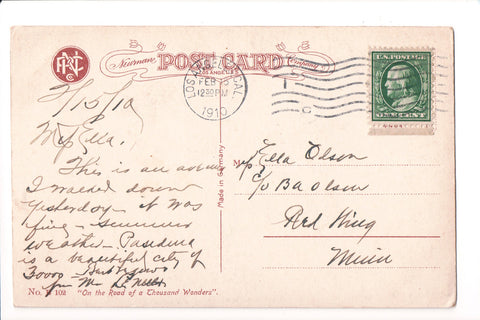 Newman POST CARD Company
LOS ANGELES
LOS ANGELES, CAL.
FEB
12 30 PM
1910
U.S. POSTAGE
2/15/10
My Ella.
This is an avenue
I walked down
yesterday - it was
fine - summer
weather - Pasadena
is a beautiful city of
30000 -
Made in Germany
Ella Olson
c/o B a Olson
Red Wing
Minn
No. 102 "On the Road of a Thousand Wonders".